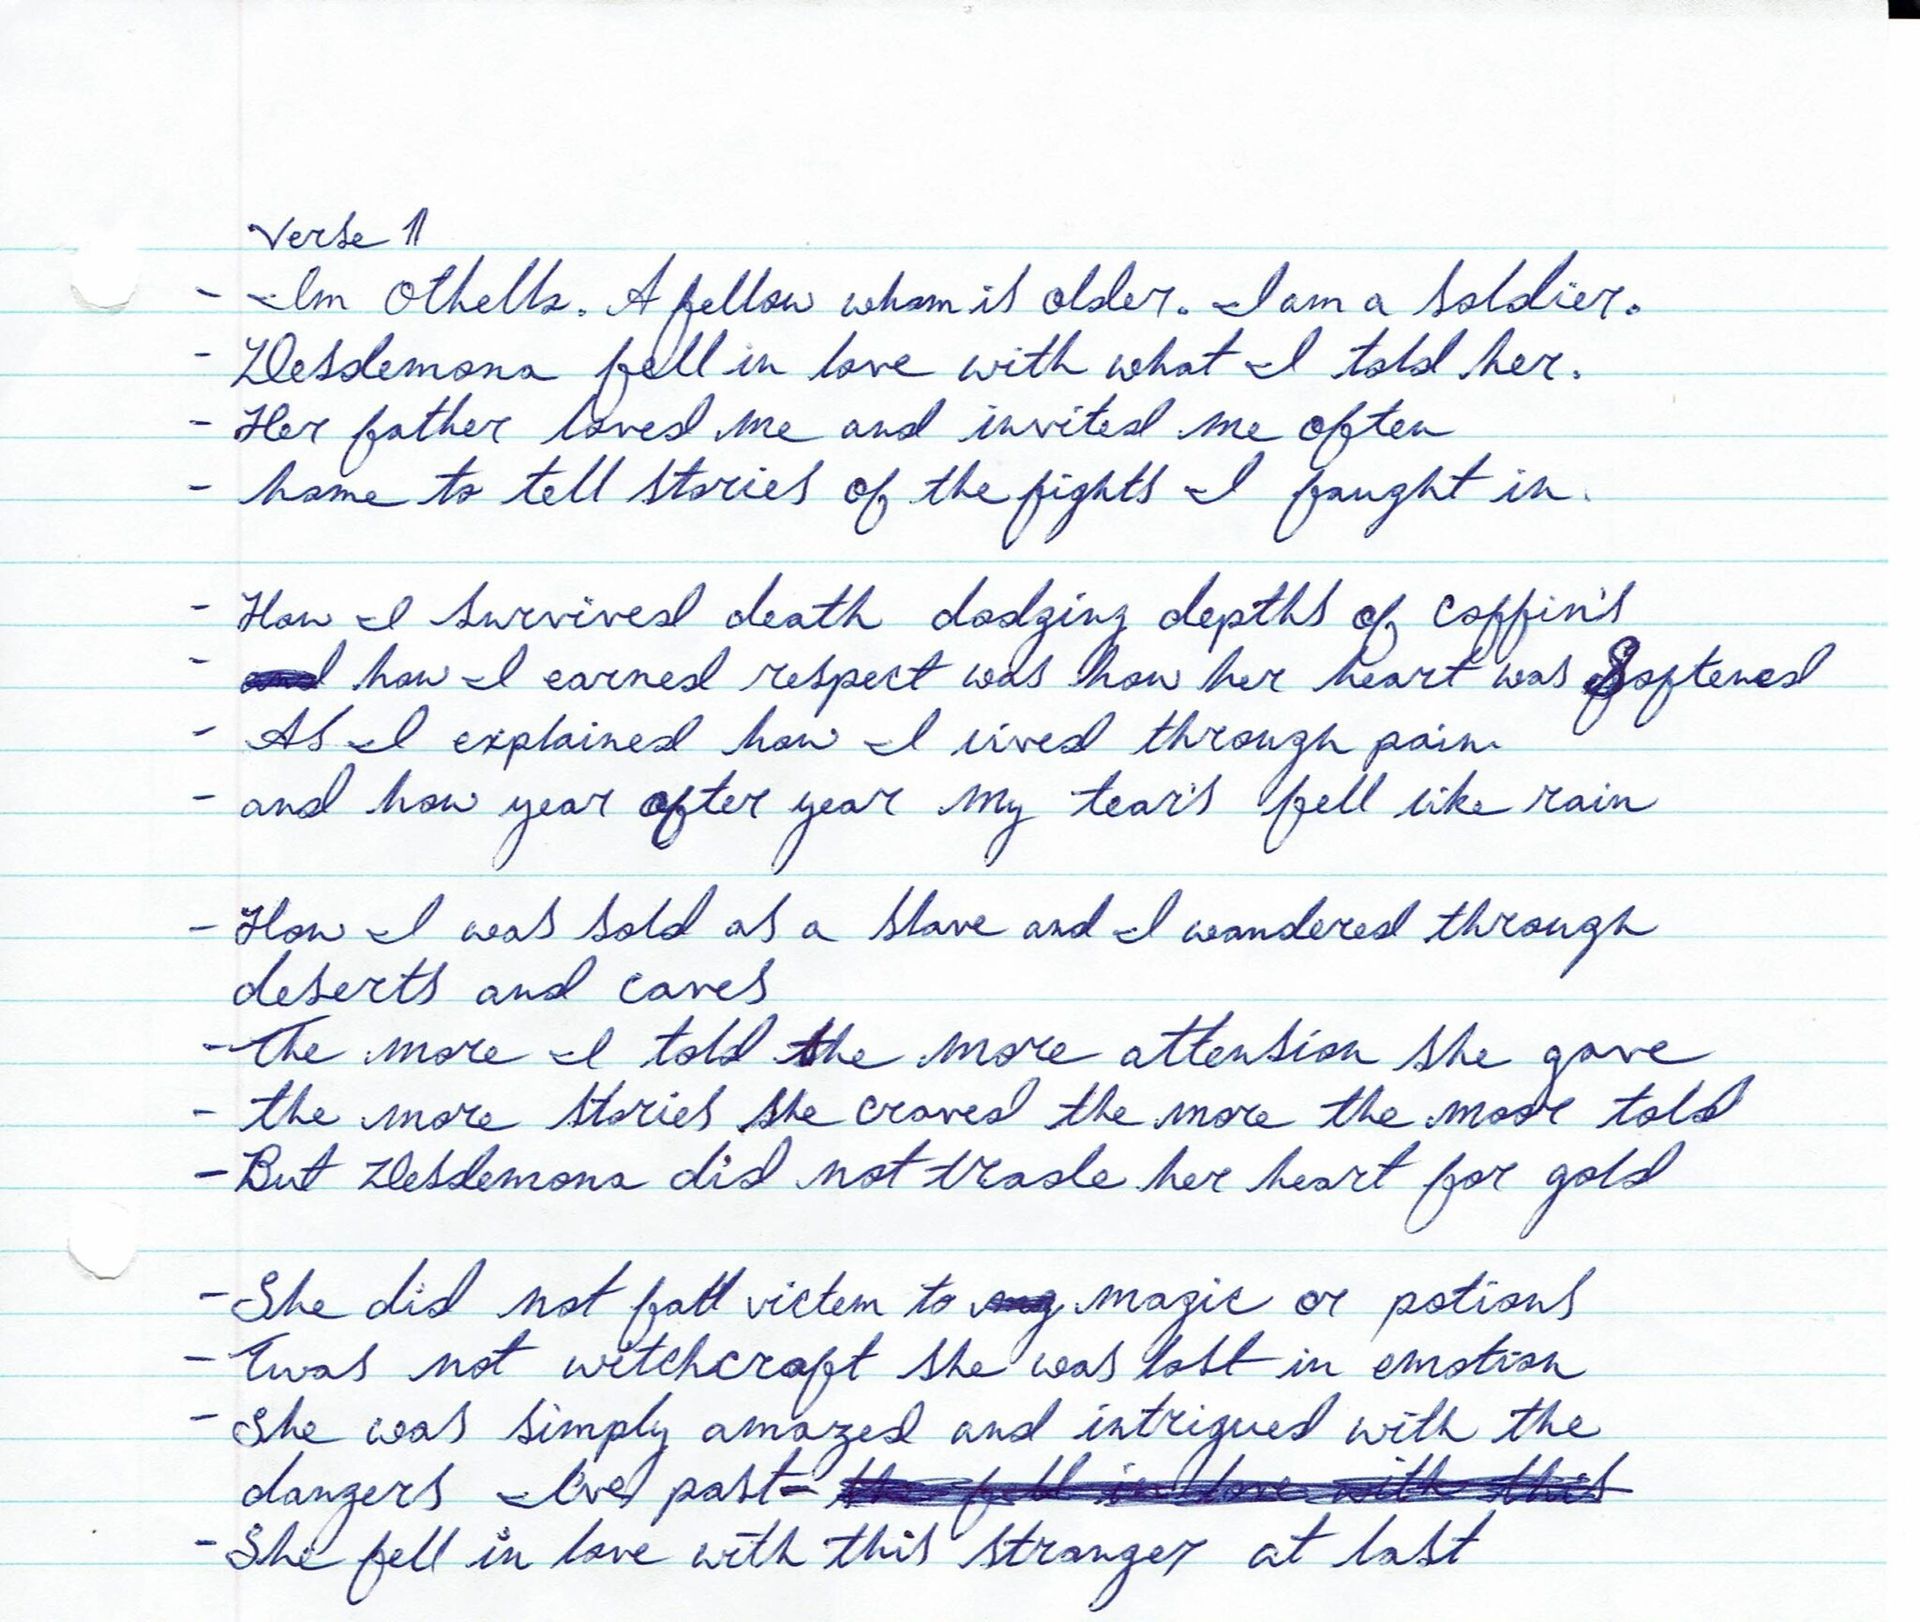 Verse 1
- Im Othello. A fellow whom is older. I am a soldier.
- Desdemona fell in love with what I told her.
- Her father loved me and invited me often
- home to tell stories of the fights I fought in.
- How I survived death dodging depths of coffin's
- and how I earned respect was how her heart was softened
- As I explained how I lived through pain.
- and how year after year my tear's fell like rain
- How I was sold as a slave and I wandered through
deserts and caves
- The more I told the more attension she gave
- the more stories she craved the more the moor told
- But Desdemona did not trade her heart for gold
- She did not fall victem to my magic or potions
- Twas not witchcraft she was lost in emotion
- She was simply amazed and intrigued with the
dangers I've past - the fell in love with this
- She fell in love with this stranger at last